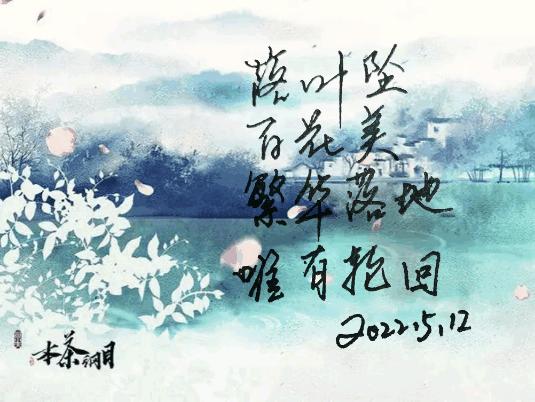 落叶坠
百花美
繁华落地
唯有轮回
2022.5.12
本茶纲目